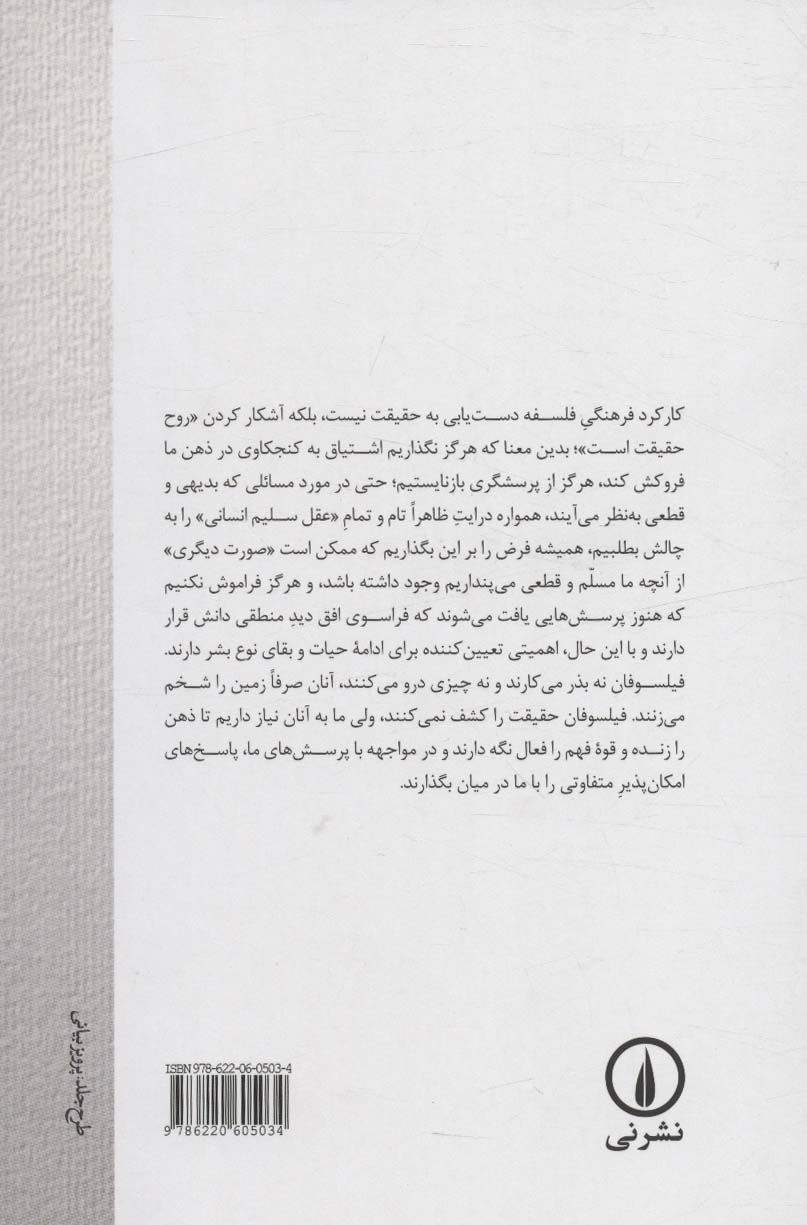 کارکرد فرهنگیِ فلسفه دست‌یابی به حقیقت نیست، بلکه آشکار کردن «روح
حقیقت است»؛ بدین معنا که هرگز نگذاریم اشتیاق به کنجکاوی در ذهن ما
فروکش کند، هرگز از پرسشگری بازنایستیم؛ حتی در مورد مسائلی که بدیهی و
قطعی به‌نظر می‌آیند، همواره درایتِ ظاهراً تام و تمامِ «عقل سلیم انسانی» را به
چالش بطلبیم، همیشه فرض را بر این بگذاریم که ممکن است «صورت دیگری»
از آنچه ما مسلّم و قطعی می‌پنداریم وجود داشته باشد، و هرگز فراموش نکنیم
که هنوز پرسش‌هایی یافت می‌شوند که فراسوی افق دیدِ منطقی دانش قرار
دارند و با این حال، اهمیتی تعیین‌کننده برای ادامهٔ حیات و بقای نوع بشر دارند.
فیلسوفان نه بذر می‌کارند و نه چیزی درو می‌کنند، آنان صرفاً زمین را شخم
می‌زنند. فیلسوفان حقیقت را کشف نمی‌کنند، ولی ما به آنان نیاز داریم تا ذهن
را زنده و قوهٔ فهم را فعال نگه دارند و در مواجهه با پرسش‌های ما، پاسخ‌های
امکان‌پذیرِ متفاوتی را با ما در میان بگذارند.
طرح جلد: پرویز بیانی
ISBN 978-622-06-0503-4
9 786220 605034
نشرنی